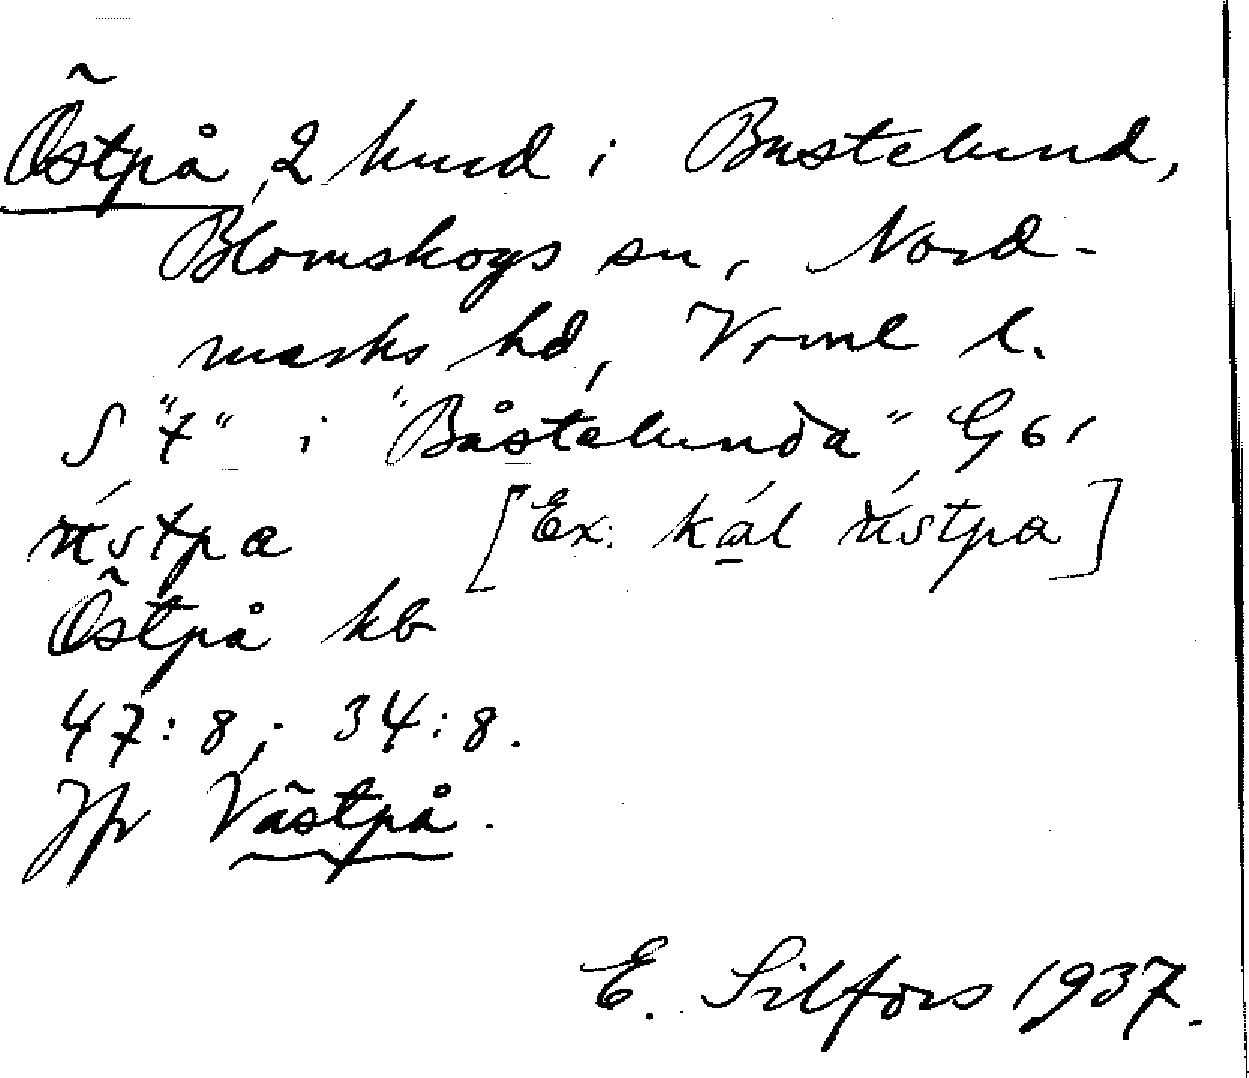 Östpå, 2 hmd i Bastelund,
Blomskogs sn, Nord-
marks hd, Vrml l.
S "7" i "Båstelunda" G61
östpa [Ex: kál östpa]
Östpå kb
47:8; 34:8.
Jfr Västpå.
E. Silfors 1937.